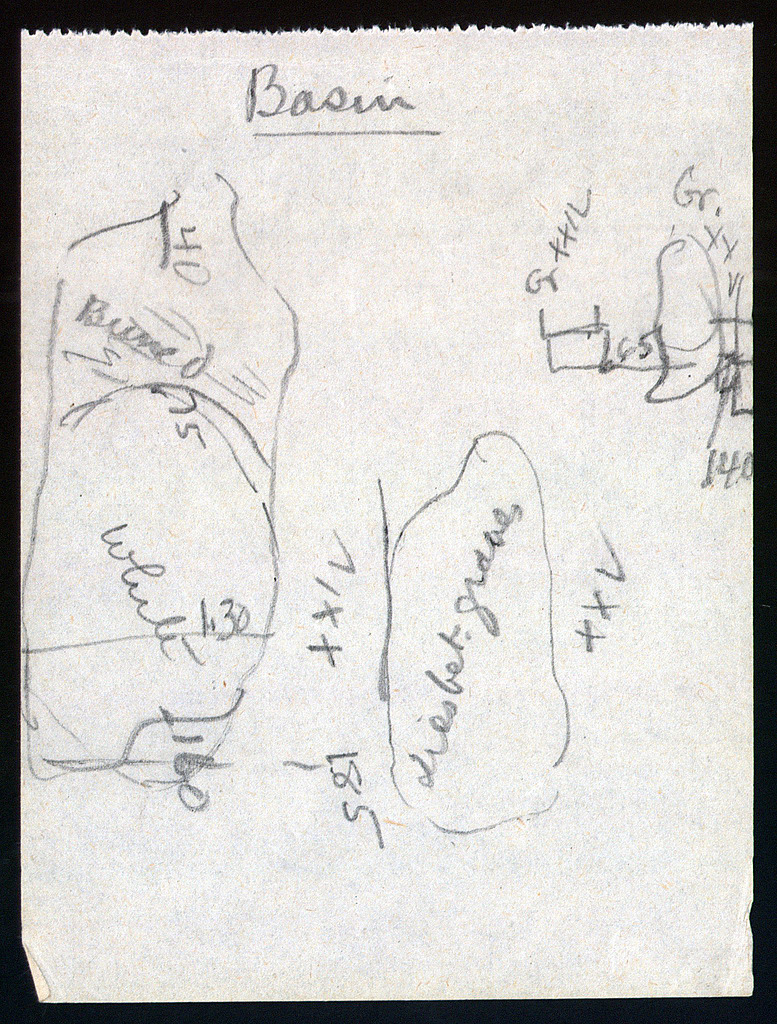 Basin
40
Burned
75
White
1.30
1.60
XXIV
1.85
dist bet. graves
XXV
Gr XXIV
.65
Gr. XXVI
140